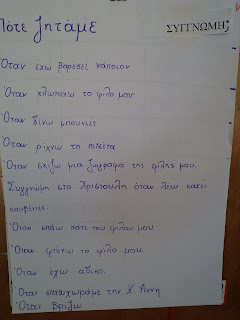 Πότε ζητάμε ΣΥΓΓΝΩΜΗ;
Όταν έχω βαρέσει κάποιον
Όταν κλωτσάω το φίλο μου
Όταν δίνω μπουνιές
Όταν ρίχνω τη πιτσία
Όταν σκίζω μια ζωγραφιά της φίλης μου.
Συγγνώμη στο Χριστούλη όταν λέω κακές
κουβέντες.
Όταν σπάω κάτι του φίλου μου,
Όταν φτύνω το φίλο μου.
Όταν έχω άδικο.
Όταν στεναχωράμε την κ. Άννη
Όταν βρίζω